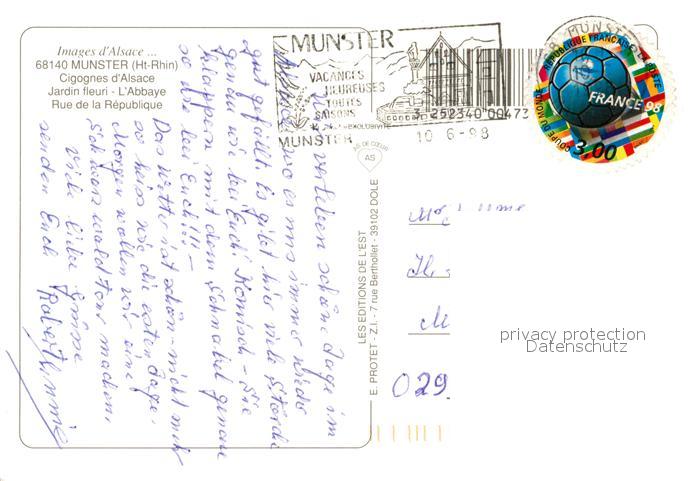 Images d'Alsace ...
68140 MUNSTER (Ht-Rhin)
Cigognes d'Alsace
Jardin fleuri - L'Abbaye
Rue de la République
MUNSTER
VACANCES
HEUREUSES
TOUTES
SAISONS
MUNSTER
10-6-98
252340 00473
MUNSTER
REPUBLIQUE FRANÇAISE
LA POSTE
FRANCE 98
COUPE DU MONDE
3,00
verleben schöne Tage im
wo es uns immer wieder
gut gefällt. Es gibt hier viele Störche
genau wie bei Euch. Komisch - sie
klappern mit dem Schnabel genau
so wie bei Euch!!! -
Das Wetter ist schön - nicht mehr
so heiss wie die ersten Tage.
Morgen wollen wir eine
Schwarzwaldtour machen.
Viele liebe Grüsse
senden Euch
Robert
LES EDITIONS DE L'EST
E. PROTET - Z.I. - 7 rue Berthollet - 39102 DOLE
AS DE CŒUR
AS
029
privacy protection
Datenschutz